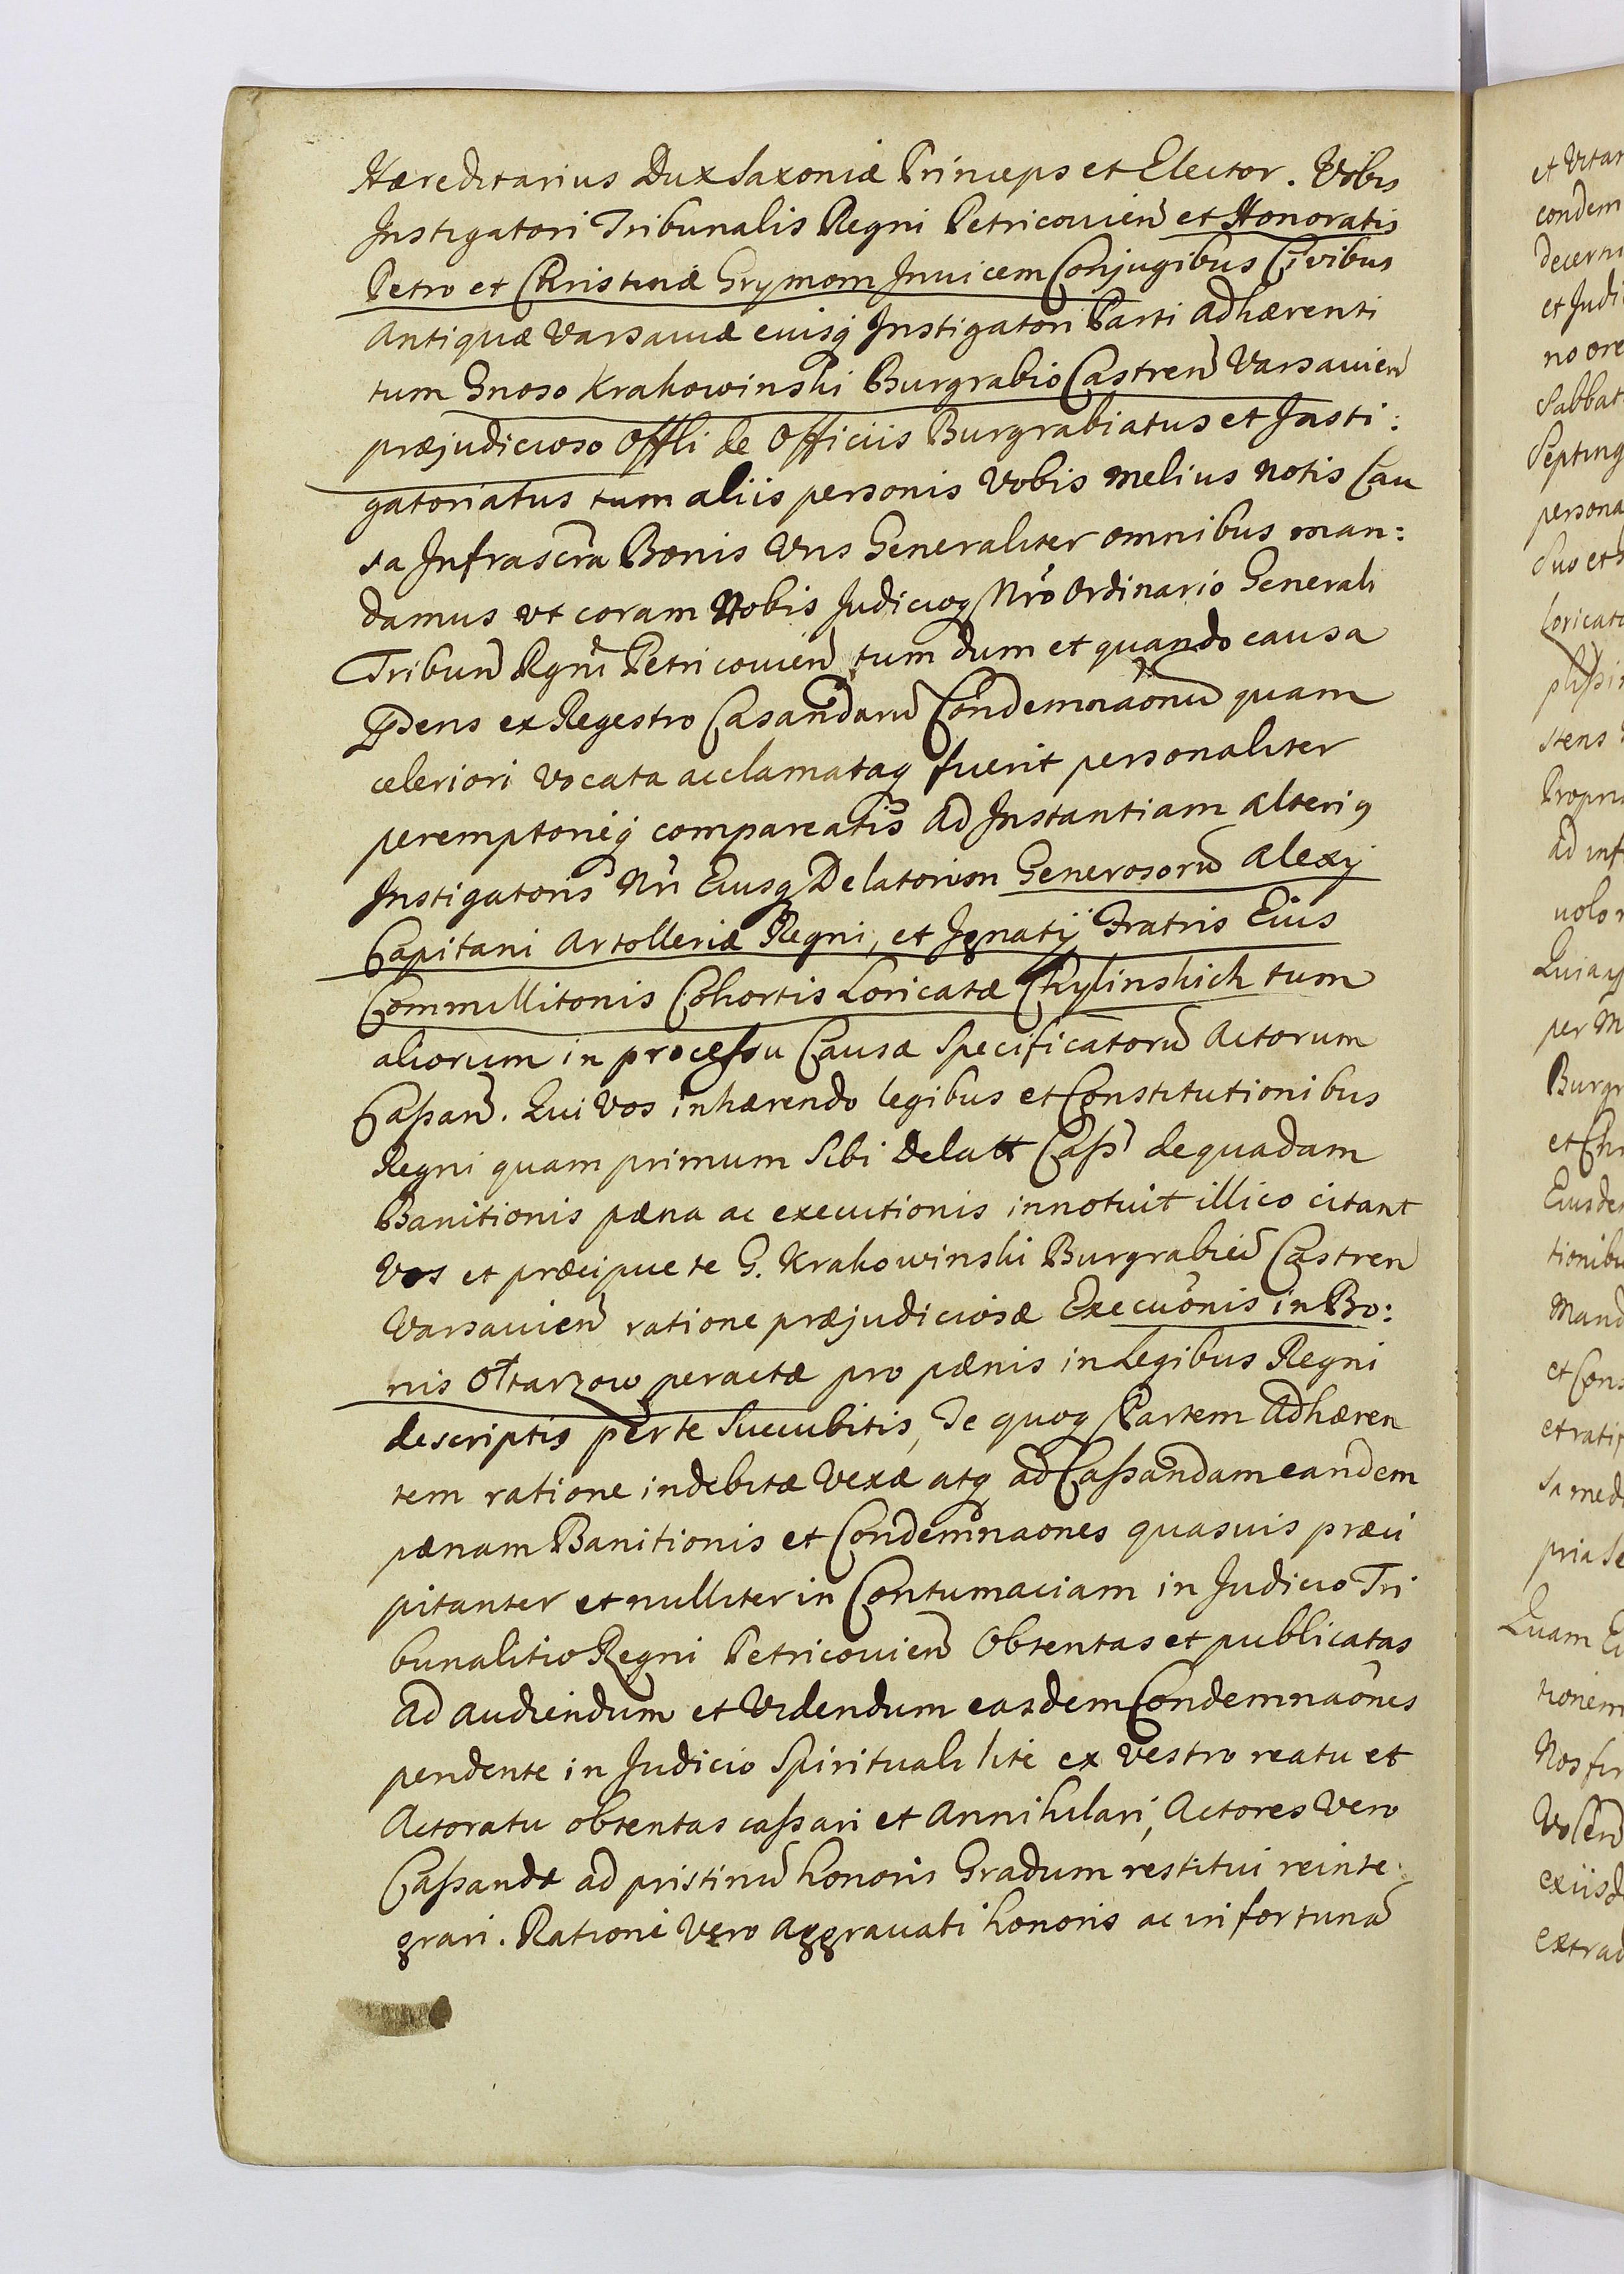 Hæreditarius Dux Saxoniæ Princeps et Elector. Vobis
Instigatori Tribunalis Regni Petricovien̄ et Honoratis
Petro et Christinæ Grymom Invicem Conjugibus Civibus
Antiquæ Varsaviæ eiusq Instigatori Parti adhærenti
tum Gnoso Krakowinski Burgrabio Castren̄ Varsavien̄
præjudicioso Offli de Officiis Burgrabiatus et Insti:
gatoriatus tum aliis personis Vobis melius notis Cau
sa Infrascrā Bonis Vris Generaliter omnibus man:
damus vt coram Nobis Judicioq Nrō Ordinario Generali
Tribun̄ Rgni Petricovien̄ tum dum et quando causa
Ppdens ex Regestro Casandarū Condemnaonū quam
celeriori vocata acclamataq fuerit personaliter
peremptorieq compareatis ad Instantiam alteriq
Instigatoris Nri Eiusq Delatorum Generosorū Alexij
Capitani Artolleriæ Regni, et Ignatij Fratris Eius
Commillitonis Cohortis Loricatæ Chylinskich tum
aliorum in processu Causæ Specificatorū Actorum
Cassan̄. Qui Vos inhærendo legibus et Constitutionibus
Regni quam primum Sibi Delatt Cass̄ de quadam
Banitionis pæna ac executionis innotuit illico citant
Vos et præcipue te G. Krakowinski Burgrabiū Castren
Varsavien̄ ratione præjudiciosæ Execuōnis in Bo:
nis Oltarzow peractæ pro pænis in Legibus Regni
descriptis per te Succubitis, Te quoq Partem Adhæren
tem ratione indebitæ Vexæ atq ad Cassandam eandem
pænam Banitionis et Condemnaones quasvis præci
pitanter et nulliter in Contumaciam in Judicio Tri
bunalitio Regni Petricovien̄ Obtentas et publicatas
ad audiendum et Videndum easdem Condemnaōnes
pendente in Judicio Spirituali lite ex vestro reatu et
Actoratu obtentas cassari et Annihilari, Actores Vero
Cassandæ ad pristinū honoris Gradum restitui reinte:
grari. Ratione Vero aggravati honoris ac infortunā
et Vitar
condem
decerni
et Judi
no ore
Sabbat
Septing
persona
Suo et
loricata
plissi
stens
Propri
ad inf
nolo
Quia
per M
Burgr
et Chri
Eiusde
tionibu
Mand
et Cons
et rati
sa med
pria Se
Quam E
tionem
Nos fir
exiisd
extrad